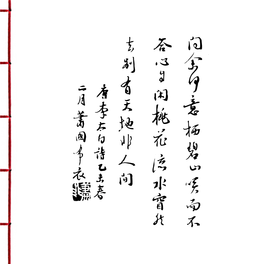 问余何意栖碧山笑而不
答心自闲桃花流水窅然
去别有天地非人间
唐李太白诗乙未春
二月萧园布衣